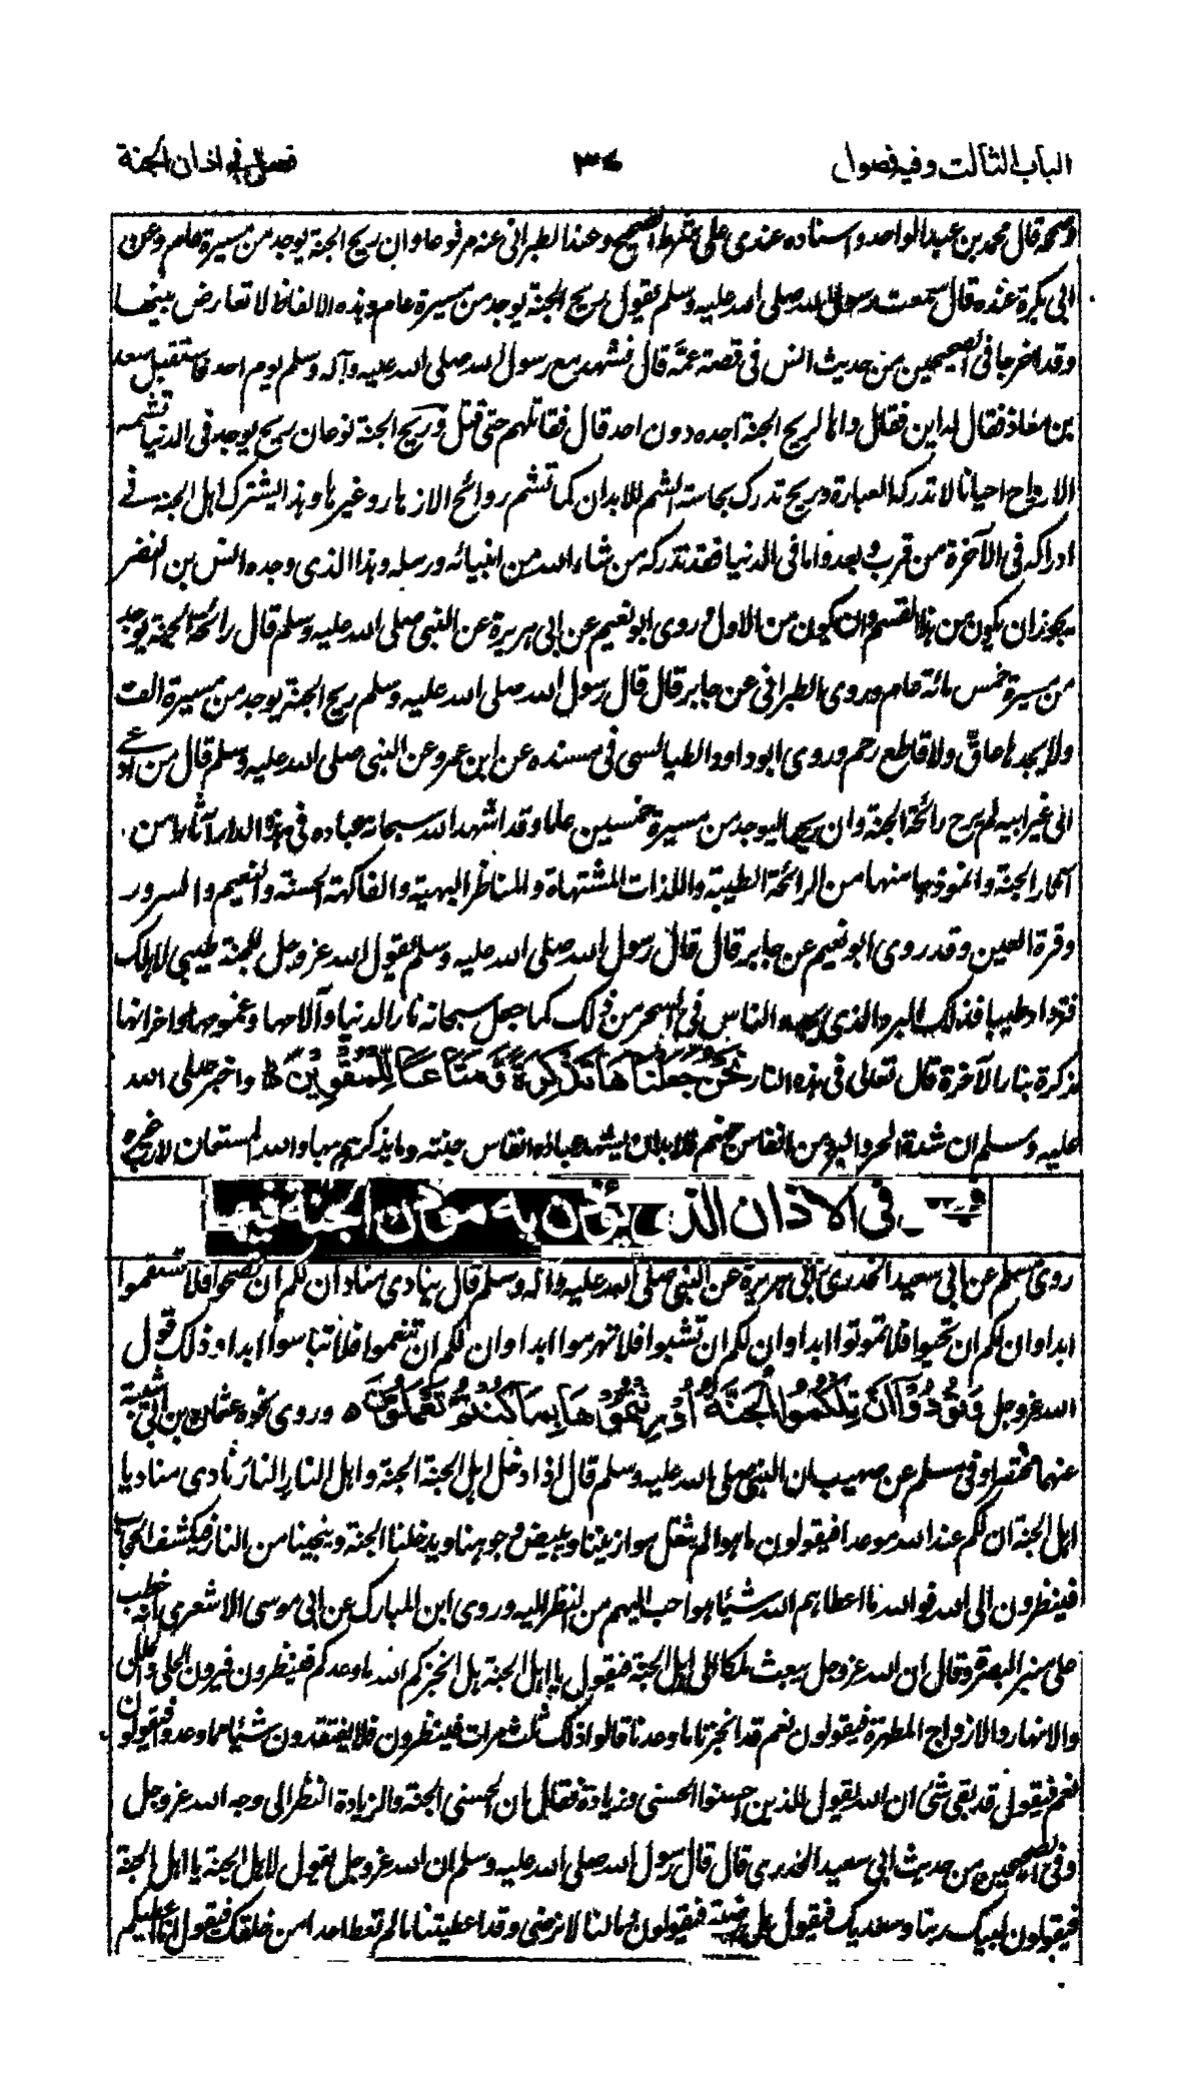 الباب الثالث وفيه فصول
٣٤
فصل في اذان الجنة
وصححه قال محمد بن عبد الواحد واسناده عندي على شرط الصحيح وعند الطبراني عنه مرفوعا وان ريح الجنة يوجد من مسيرة عام وعن
ابي بكرة عنده قال سمعت رسول الله صلى الله عليه وسلم يقول ريح الجنة يوجد من مسيرة عام وهذه الالفاظ لا تعارض بينها
وقد اخرجا في الصحيحين من حديث انس في قصة عمه قال فشهد مع رسول الله صلى الله عليه وآله وسلم يوم احد فاستقبل سعد
بن معاذ فقال له اين فقال واها لريح الجنة اجده دون احد قال فقاتلهم حتى قتل وريح الجنة نوعان ريح يوجد في الدنيا تشمه
الارواح احيانا لا تدركه العبارة وريح تدرك بحاسة الشم للابدان كما تشم روائح الازهار وغيرها وهذا يشترك اهل الجنة في
ادراكه في الآخرة من قرب وبعد واما في الدنيا فقد تدركه من شاء الله من انبيائه ورسله وهذا الذي وجده انس بن النضر
يجوز ان يكون من هذا القسم وان يكون من الاول وروى ابو نعيم عن ابي هريرة عن النبي صلى الله عليه وسلم قال رائحة الجنة يوجد
من مسيرة خمس مائة عام وروى الطبراني عن جابر قال قال رسول الله صلى الله عليه وسلم ريح الجنة يوجد من مسيرة الف
ولا يجدها عاق ولا قاطع رحم وروى ابو داود الطيالسى في مسنده عن ابن عمرو عن النبي صلى الله عليه وسلم قال من ادعى
الى غير ابيه لم يرح رائحة الجنة وان ريحها ليوجد من مسيرة خمسين عاما وقد اشهد الله سبحانه عباده في هذه الدار آثارا من
آثار الجنة وانموذجا منها من الرائحة الطيبة واللذات المشتهاة والمناظر البهية والفاكهة الحسنة والنعيم والسرور
وقرة العين وقد روى ابو نعيم عن جابر قال قال رسول الله صلى الله عليه وسلم يقول الله عز وجل للجنة طيبي لاهلك
فتزداد طيبا فذلك البرد الذي يجده الناس في السحر من ذلك كما جعل سبحانه نار الدنيا وآلامها وغمومها واحزانها
تذكرة بنار الآخرة قال تعالى في هذه النار نَحْنُ جَعَلْنَاهَا تَذْكِرَةً وَّمَتَاعًا لِّلْمُقْوِيْنَ ٥ واخبر صلى الله
عليه وسلم ان شدة الحر والبرد من انفاس جهنم فلابد ان يشهد عباده انفاس جنته وما يذكرهم بها والله المستعان لا رب غيره
فصل في الاذان الذي يؤذن به مؤذن الجنة فيها
روى مسلم عن ابي سعيد الخدري وابي هريرة عن النبي صلى الله عليه وآله وسلم قال ينادي مناد ان لكم ان تصحوا فلا تسقموا
ابدا وان لكم ان تحيوا فلا تموتوا ابدا وان لكم ان تشبوا فلا تهرموا ابدا وان لكم ان تنعموا فلا تباسوا ابدا وذلك قول
الله عز وجل وَنُوْدُوْآ اَنْ تِلْكُمُ الْجَنَّةُ اُوْرِثْتُمُوْهَا بِمَا كُنْتُمْ تَعْمَلُوْنَ ٥ وروى نحوه عثمان بن ابي شيبة
عنهما مختصرا وفي مسلم عن صهيب ان النبي صلى الله عليه وسلم قال اذا دخل اهل الجنة الجنة واهل النار النار نادى مناد يا
اهل الجنة ان لكم عند الله موعدا فيقولون ما هو الم يثقل موازيننا ويبيض وجوهنا ويدخلنا الجنة وينجينا من النار فيكشف الحجاب
فينظرون الى الله فوالله ما اعطاهم الله شيئا هو احب اليهم من النظر اليه وروى ابن المبارك عن ابي موسى الاشعري انه خطب
على منبر البصرة وقال ان الله عز وجل يبعث ملكا الى اهل الجنة فيقول يا اهل الجنة هل انجزكم الله ما وعدكم فينظرون فيرون الحلى والحلل
والانهار والازواج المطهرة فيقولون نعم قد انجزنا ما وعدنا قالوا ذلك ثلث مرات فينظرون فلا يفتقدون شيئا مما وعدوا فيقولون
نعم فيقول قد بقى شئ ان الله يقول للذين احسنوا الحسنى وزيادة فقال ان الحسنى الجنة والزيادة النظر الى وجه الله عز وجل
وفي الصحيحين من حديث ابي سعيد الخدري قال قال رسول الله صلى الله عليه وسلم ان الله عز وجل يقول لاهل الجنة يا اهل الجنة
فيقولون لبيك ربنا وسعديك فيقول هل رضيتم فيقولون ما لنا لا نرضى وقد اعطيتنا ما لم تعط احدا من خلقك فيقول انا اعطيكم